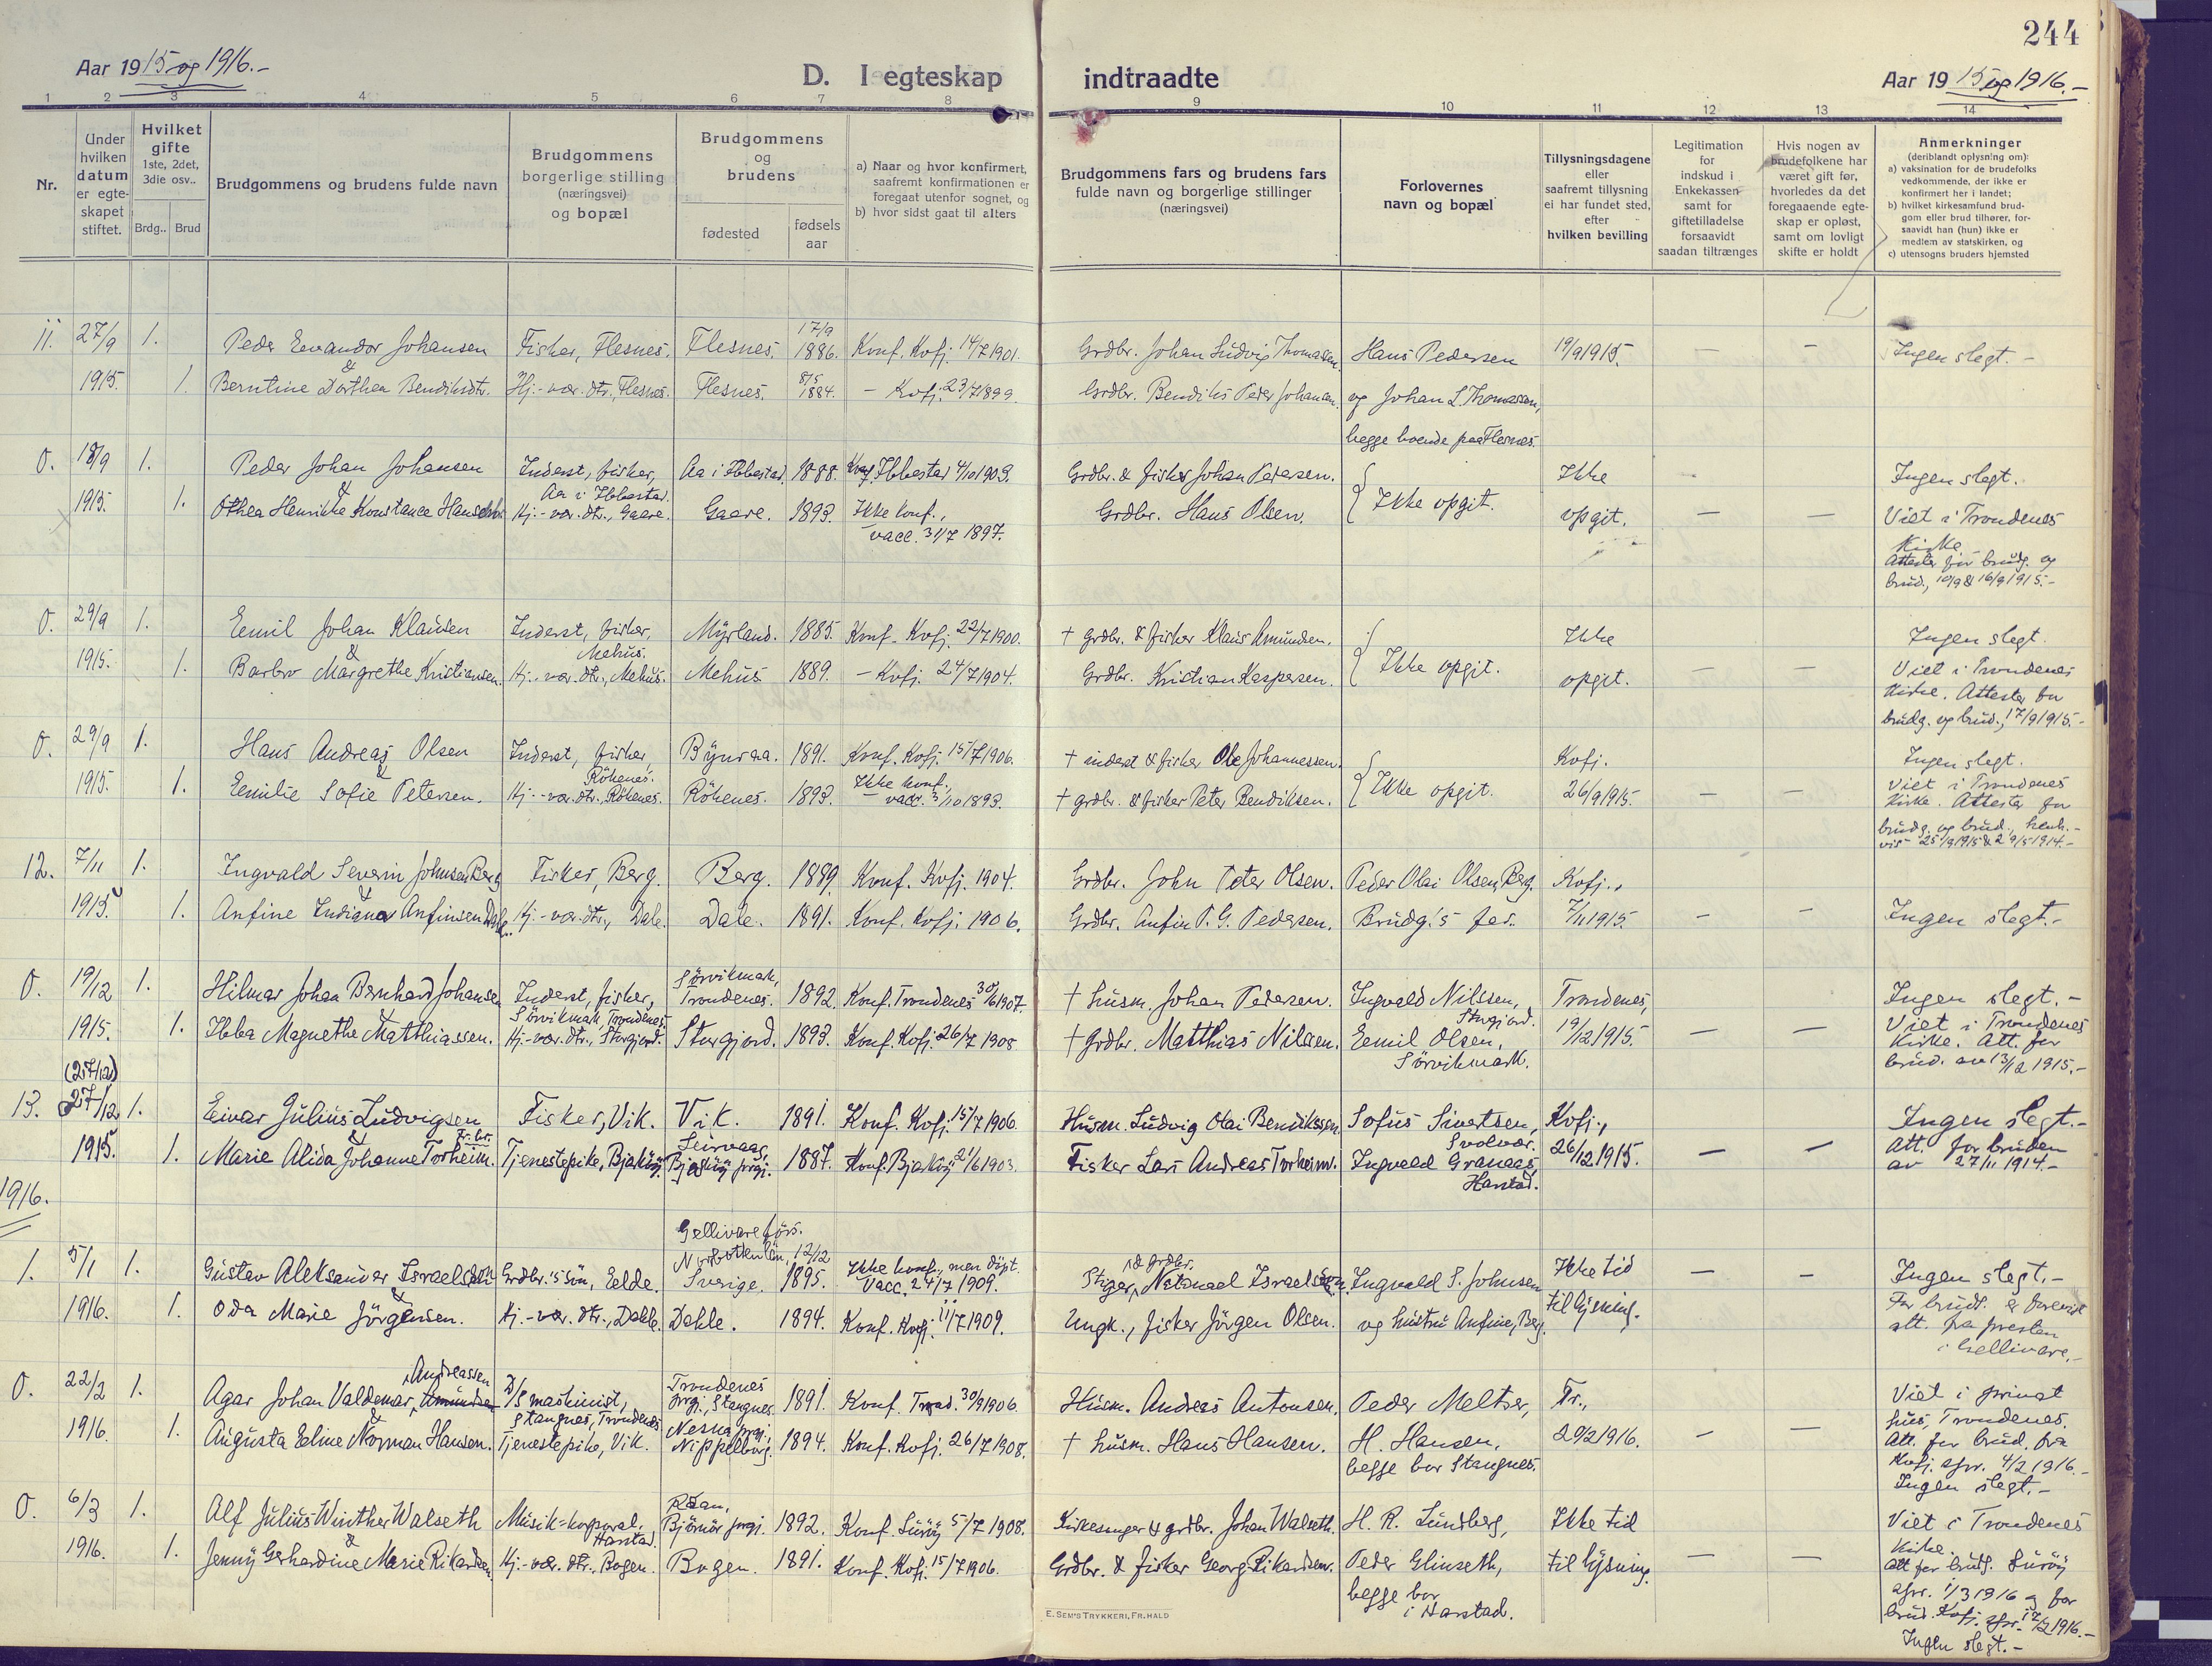 244
Aar 1915 og 1916.-
D. I egteskap indtraadte
Aar 1915 og 1916.-
1 2 3 4 5 6 7 8 9 10 11 12 13 14
Nr.
Under hvilken datum er egteskapet stiftet.
Hvilket gifte 1ste, 2det, 3die osv..
Brdg.. Brud
Brudgommens og brudens fulde navn
Brudgommens borgerlige stilling (næringsvei) og bopæl
Brudgommens og brudens
fødested
fødsels aar
a) Naar og hvor konfirmert, saafremt konfirmationen er foregaat utenfor sognet, og
b) hvor sidst gaat til alters
Brudgommens fars og brudens fars fulde navn og borgerlige stillinger (næringsvei)
Forlovernes navn og bopæl
Tillysningsdagene eller saafremt tillysning ei har fundet sted, efter hvilken bevilling
Legitimation for indskud i Enkekassen samt for giftetilladelse forsaavidt saadan tiltrænges
Hvis nogen av brudefolkene har været gift før, hvorledes da det foregaaende egteskap er opløst, samt om lovligt skifte er holdt
Anmerkninger
(deriblandt oplysning om):
a) vaksination for de brudefolks vedkommende, der ikke er konfirmert her i landet;
b) hvilket kirkesamfund brudgom eller brud tilhører, forsaavidt han (hun) ikke er medlem av statskirken, og
c) utensogns bruders hjemsted
11. 27/9 1. Peder Evandor Johansen Fisker, Flesnes. Flesnes. 17/9 1886. Konf. Kvfj. 14/7 1901. Grdbr. Johan Ludvig Thomassen. Hans Pedersen 19/9 1915. — — Ingen slegt. -
&
1915. 1. Berntine Dorthea Bendiksdtr. Hj.-vær. dtr., Flesnes. Flesnes. 8/5 1884. - Kvfj. 23/7 1899. Grdbr. Bendiks Peder Johansen. og Johan L. Thomassen,
begge boende paa Flesnes.
0. 18/9 1. Peder Johan Johansen Inderst, fisker, Aa i Ibbestad. Aa i Ibbestad. 1888. Konf. Ibbestad 4/10 1903. Grdbr. & fisker Johan Pedersen. Ikke opgit. Ikke Ingen slegt.
&
1915. 1. Othea Henrikke Konstance Hansdtr. Hj.-vær. dtr., Gaare. Gaare. 1893. Ikke konf., Grdbr. Hans Olsen. opgit. — — Viet i Trondenes
vacc. 31/7 1897. Kirke
Attester for brudg. og
brud, 10/9 & 16/9 1915.-
0. 29/9 1. Emil Johan Klausen Inderst, fisker, Mehus. Myrland. 1885. Konf. Kvfj. 22/7 1900. † grdbr. & fisker Klaus Amundsen. Ikke opgit. Ikke Ingen slegt.
&
1915. 1. Barbro Margrethe Kristiansen. Hj.-vær. dtr., Mehus. Mehus 1889. - Kvfj. 24/7 1904. Grdbr. Kristian Kaspersen. opgit. — — Viet i Trondenes
Kirke. Attester for
brudg. og brud., 17/9 1915.-
0. 29/9 1. Hans Andreas Olsen Inderst, fisker, Rökenes. 1891. Konf. Kvfj. 15/7 1906. † inderst & fisker Ole Johannessen. Ikke opgit. Kvfj. Ingen slegt.
&
1915. 1. Emilie Sofie Petersen. Hj.-vær. dtr., Rökenes. Rökenes. 1893. Ikke konf., vacc. 3/10 1893. † grdbr. & fisker Peter Bendiksen. 26/9 1915. — — Viet i Trondenes
Kirke. Attester for
brudg. og brud., henh.-
vis 25/9 1915 & 29/5 1914.-
12. 7/11 1. Ingvald Severin Johnsen Berg Fisker, Berg. Berg. 1889. Konf. Kvfj. 1904. Grdbr. John Peter Olsen. Peder Olai Olsen, Berg. Kvfj.,
&
1915. 1. Anfine Indiana Anfinsen Dale. Hj.-vær. dtr., Dale. Dale. 1891. Konf. Kvfj. 1906. Grdbr. Anfin P. G. Pedersen. Brudg.'s far. 7/11 1915. — — Ingen slegt.-
0. 19/12 1. Hilmar Johan Bernhard Johansen Inderst, fisker, Sörvikmark, Trondenes. Sörvikmark, Trondenes. 1892. Konf. Trondenes 30/6 1907. † husm. Johan Pedersen. Ingvald Nilssen, Storjord. Trondenes, Ingen slegt.-
&
1915. 1. Ibba Magnethe Matthiassen. Hj.-vær. dtr., Storjord. Storjord. 1893. Konf. Kvfj. 26/7 1908. † grdbr. Matthias Nilsen. Emil Olsen, Sörvikmark. 19/12 1915. — — Viet i Trondenes
Kirke. Att. for
brud. av 13/12 1915.-
(27/12)
13. 27/12 1. Eivar Julius Ludvigsen Fisker, Vik. Vik. 1891. Konf. Kvfj. 15/7 1906. Husm. Ludvig Olai Bendikssen. Sofus Sivertsen, Svolvær. Kvfj., Ingen slegt.-
&
1915. 1. Marie Alida Johanne Torheim. Tjenestepike, Bjarköy. Leirvaag, Bjarköy prgj. 1887. Konf. Bjarköy 21/6 1903. Fisker Lars Andreas Torheim. Ingvald Granaas, Harstad. 26/12 1915. — — Att. for bruden
av 27/11 1914.-
1916.
Gellivare förs.
1. 5/1 1. Gustav Aleksander Israelsson Grdbr.'s sön, Eelde. Norbotten län, Sverige. 12/12 1895. Ikke konf., men döpt. Vacc. 24/7 1909. Stiger, & grdbr. Natanael Israelsson. Ingvald S. Johnsen Ikke tid — — Ingen slegt.-
&
1916. 1. Oda Marie Jörgensen. Hj.-vær. dtr., Dahle. Dahle. 1894. Konf. Kvfj. 11/7 1909. Ungk., fisker Jörgen Olsen. og hustru Anfine, Berg. til lysning. For brudg. er forevist
att. fra presten
i Gellivare.-
0. 22/2 1. Agar Johan Valdemar Andreassen D/S maskinist, Stangnes, Trondenes Trondenes prgj., Stangnes. 1891. Konf. Trond. 30/9 1906. Husm. Anders Antonsen. Peder Meltser, Tr., Viet i privat
&
1916. 1. Augusta Eeline Norman Hansen. Tjenestepike, Vik. Nesna prgj., Nippelborg. 1894. Konf. Kvfj. 26/7 1908. † husm. Hans Hansen. H. Hansen, begge bor Stangnes. 20/2 1916. — — hus, Trondenes.
Att. for brud. fra
Kvfj. spr. 4/2 1916.-
Ingen slegt.-
0. 6/3 1. Alf Julius Winther Walseth Musik-korporal, Harstad. Björnör prgj. 1892. Konf. Suröy 5/7 1908. Kirkesanger & grdbr. Johan Walseth. H. R. Lundberg, Ikke tid Viet i Trondenes
&
1916. 1. Jenny Gerhardine Marie Rikardsen. Hj.-vær. dtr., Bogen. Bogen. 1891. Konf. Kvfj. 15/7 1906. Grdbr. & fisker Georg Rikardsen. Peder Glinseth, begge bor i Harstad. til lysning. — — Kirke.
Att for brudg. Suröy
spr. 1/3 1916 og for
brud. Kvfj. spr. 17/2 1916.-
Ingen slegt.-
E. SEM'S TRYKKERI, FR.HALD